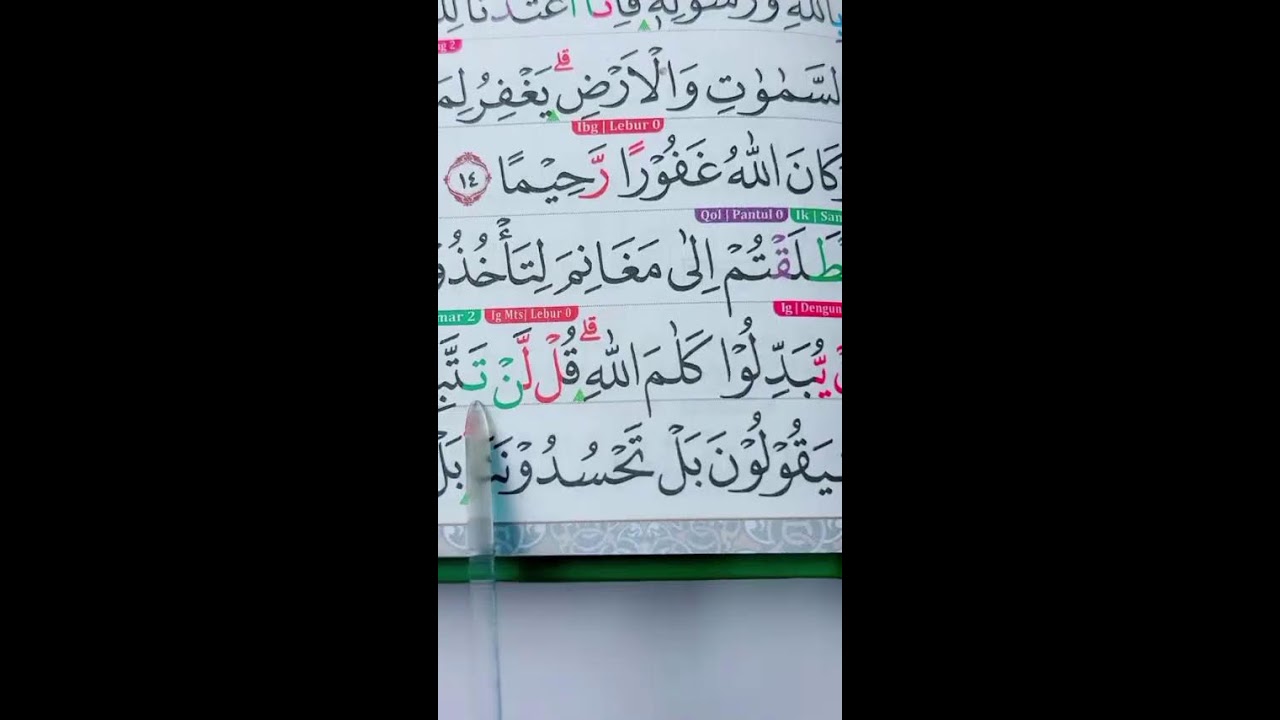 بِاللّٰهِ وَرَسُوْلِهٖ فَاِنَّآ اَعْتَدْنَا
السَّمٰوٰتِ وَالْاَرْضِۗ يَغْفِرُ
Ibg | Lebur 0
كَانَ اللّٰهُ غَفُوْرًا رَّحِيْمًا ١٤
Qol | Pantul 0 Ik |
طَلَقْتُمْ اِلٰى مَغَانِمَ لِتَأْخُذُ
Ig | Dengun Ig Mts| Lebur 0 mar 2
يُّبَدِّلُوْا كَلٰمَ اللّٰهِۗ قُلْ لَّنْ تَتَّبِ
يَقُوْلُوْنَ بَلْ تَحْسُدُوْنَ بَلْ